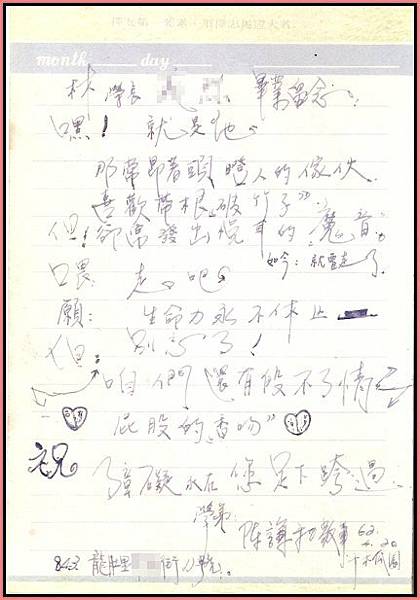 month day
林 學長 畢業留念:
嘿! 就是他。
那常昂著頭 瞪人的傢伙.
喜歡帶根"破竹子".
但! 卻常發出悅耳的魔音.
如今: 就要走了.
喂: 走吧。
願: 生命力永不休止
但: 別忘了!
咱們還有段不了情
屁股的"香吻"
祝 障礙永在您足下跨過.
學弟:
陳謙 敬
62.
843 龍